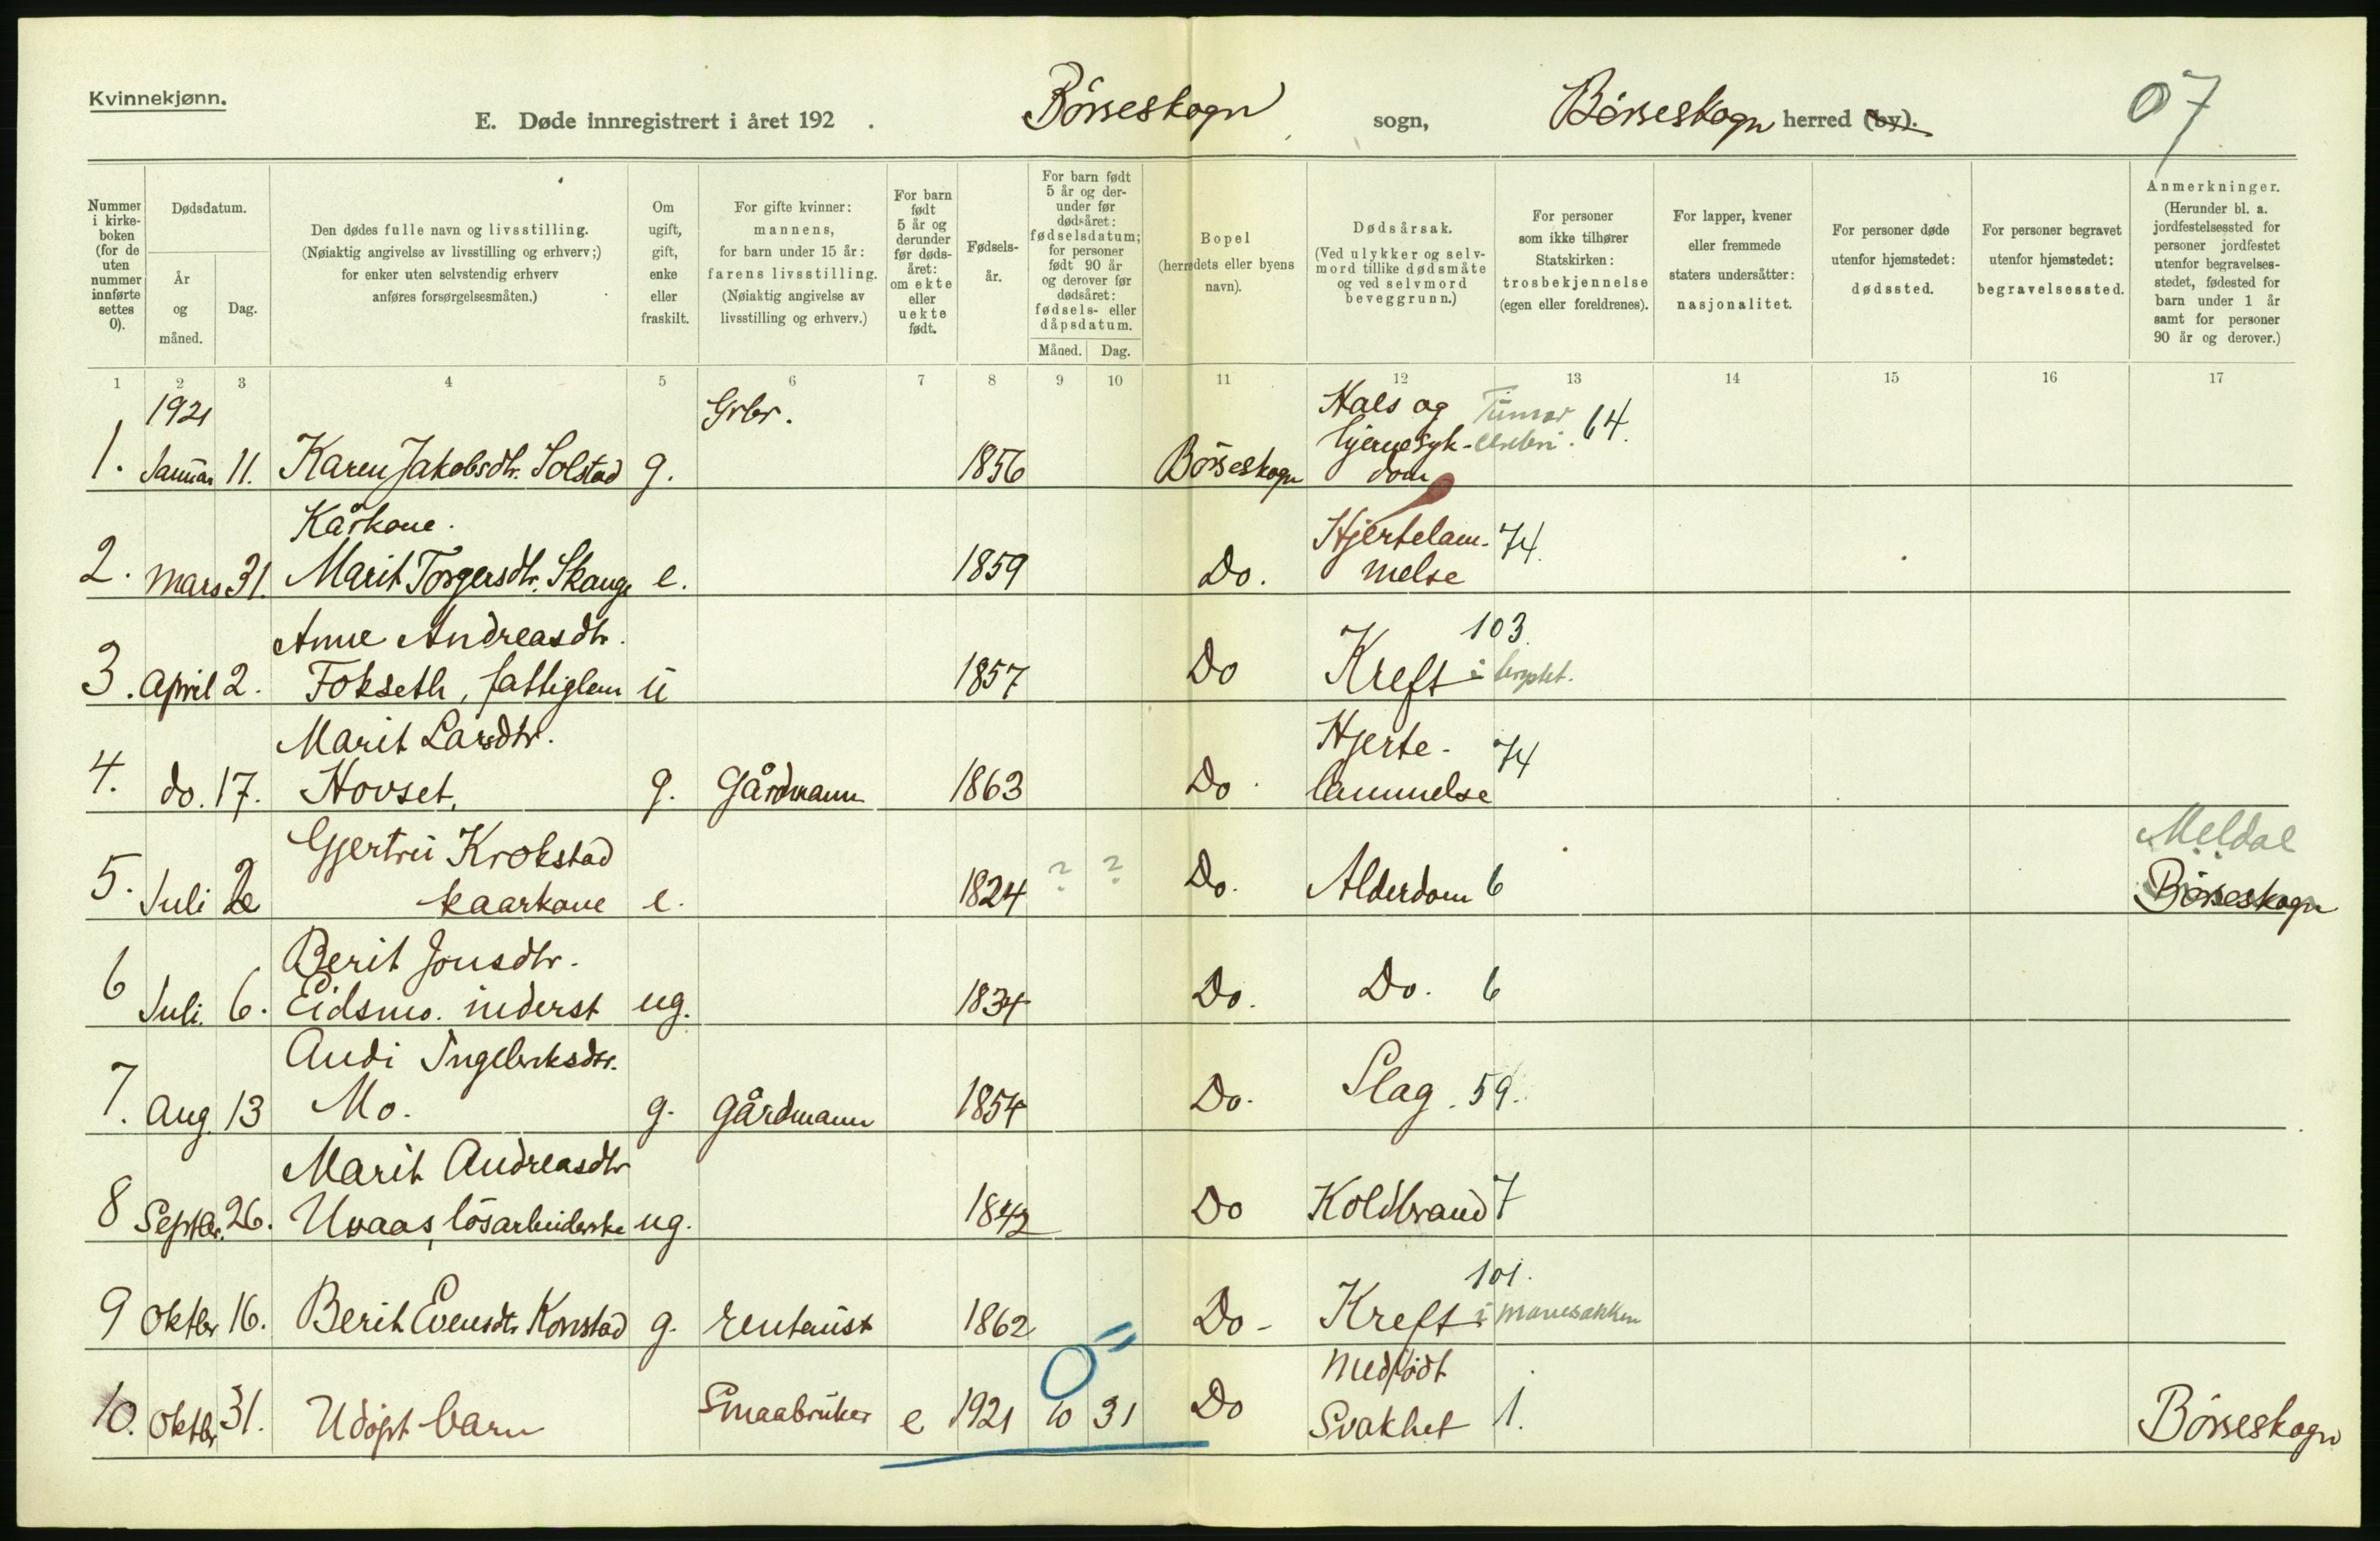 Kvinnekjønn.
E. Døde innregistrert i året 192 . Börseskogn sogn, Börseskogn herred (by). 07
Nummer i kirkeboken (for de uten nummer innførte settes 0).
Dødsdatum.
År og måned.
Dag.
Den dødes fulle navn og livsstilling.
(Nøiaktig angivelse av livsstilling og erhverv;)
for enker uten selvstendig erhverv
anføres forsørgelsesmåten.)
Om ugift, gift, enke eller fraskilt.
For gifte kvinner:
mannens,
for barn under 15 år:
farens livsstilling.
(Nøiaktig angivelse av
livsstilling og erhverv.)
For barn født 5 år og derunder før dødsåret: om ekte eller uekte født.
Fødselsår.
For barn født 5 år og derunder før dødsåret: fødselsdatum; for personer født 90 år og derover før dødsåret: fødsels- eller dåpsdatum.
Måned. Dag.
Bopel
(herredets eller byens
navn).
Dødsårsak.
(Ved ulykker og selv-
mord tillike dødsmåte
og ved selvmord
beveggrunn.)
For personer
som ikke tilhører
Statskirken:
trosbekjennelse
(egen eller foreldrenes).
For lapper, kvener
eller fremmede
staters undersåtter:
nasjonalitet.
For personer døde
utenfor hjemstedet:
dødssted.
For personer begravet
utenfor hjemstedet:
begravelsessted.
Anmerkninger.
(Herunder bl. a.
jordfestelsessted for
personer jordfestet
utenfor begravelses-
stedet, fødested for
barn under 1 år
samt for personer
90 år og derover.)
1 2 3 4 5 6 7 8 9 10 11 12 13 14 15 16 17
1921 Grbr. Hals og Tumor
hjernesyk- cerebri. 64.
1. Januar 11. Karen Jakobsdtr. Solstad g. 1856 Börseskogn dom
Kårkone. Hjertelam- 74.
2. Mars 31. Marit Torgersdtr. Skauge e. 1859 Do. melse
Anne Andreasdtr. 103.
3. April 2. Fokseth, fattiglem u 1857 Do Kreft i brystet.
Marit Larsdtr. Hjerte- 74
4. do. 17. Hovset, g. Gårdmann 1863 Do lammelse
Gjertru Krokstad Meldal
5. Juli 2 kaarkone e. 1824 ? ? Do. Alderdom 6 Börseskogn
Berit Jonsdtr.
6 Juli. 6. Eidsmo. inderst ug. 1834 Do. Do. 6
Audi Ingebrktsdtr.
7. Aug. 13 Mo. g. gårdmann 1854 Do. Slag. 59.
Marit Andreasdtr
8 Septbr. 26. Uvaas, lösarbeiderske ug. 1842 Do Koldbrand 7
101.
9 Oktbr 16. Berit Evensdtr Konstad g. rentenist 1862 Do- Kreft i mavesækken
0 Medfödt
10. Oktbr 31. Udöpt barn Smaabruker e 1921 10 31 Do Svakhet 1. Börseskogn